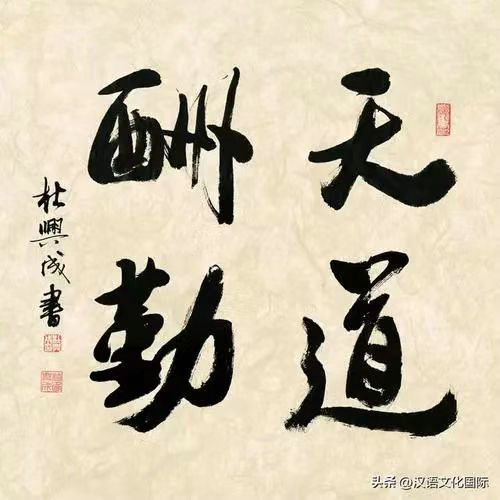 天道
酬勤
杜興成書
头条 @汉语文化国际